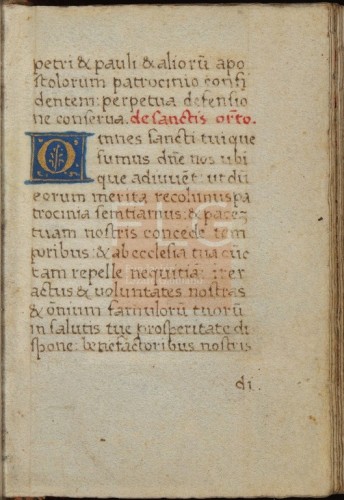 petri & pauli & aliorū apo
stolorum patrocinio confi
dentem: perpetua defensio
ne conserua. de sanctis orō.
Omnes sancti tui que
sumus dn̄e nos ubi
que adiuuēt: ut dū
eorum merita recolimus pa
trocinia sentiamus: & pacē
tuam nostris concede tem
poribus: & ab ecclesia tua cūc
tam repelle nequitia: iter
actus & uoluntates nostras
& oninm famulorū tuorū
in salutis tue prosperitate di
spone: benefactoribus nostris
di.